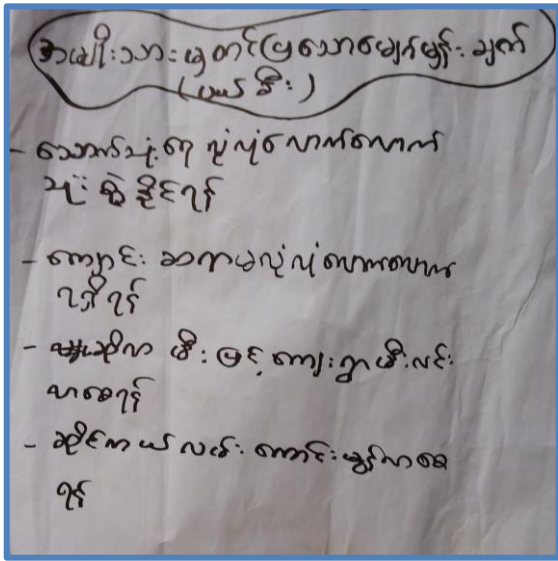 အမျိုးသားမှတင်ပြသောမျှော်မှန်းချက်
(ဖယ်ခီး)
- သောက်သုံးရေ လုံလုံလောက်လောက်
သုံးစွဲနိုင်ရန်
- ကျောင်းဆရာမလုံလုံလောက်လောက်
ရရှိရန်
- ဆိုလာမီးဖြင့်ကျေးရွာမီးလင်း
လာစေရန်
- ဆိုင်ကယ်လမ်းကောင်းမွန်လာစေ
ရန်